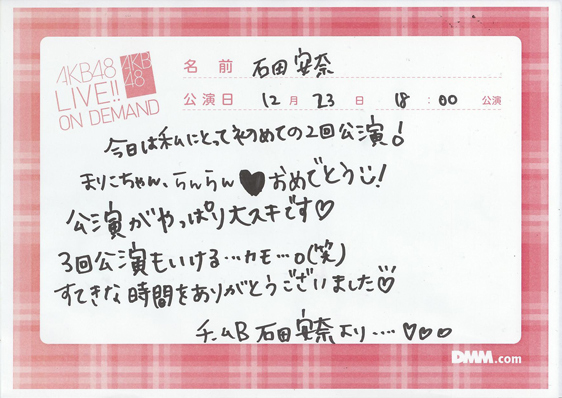 AKB48
LIVE!!
ON DEMAND
AKB
48
名前 石田安奈
公演日 12月23日 18:00 公演
今日は私にとって初めての2回公演!
まりこちゃん、らんらん♥おめでとう!
公演がやっぱり大スキです♡
3回公演もいける…カモ…。(笑)
すてきな時間をありがとうございました♡
チームB 石田安奈より….♡♡♡
DMM.com